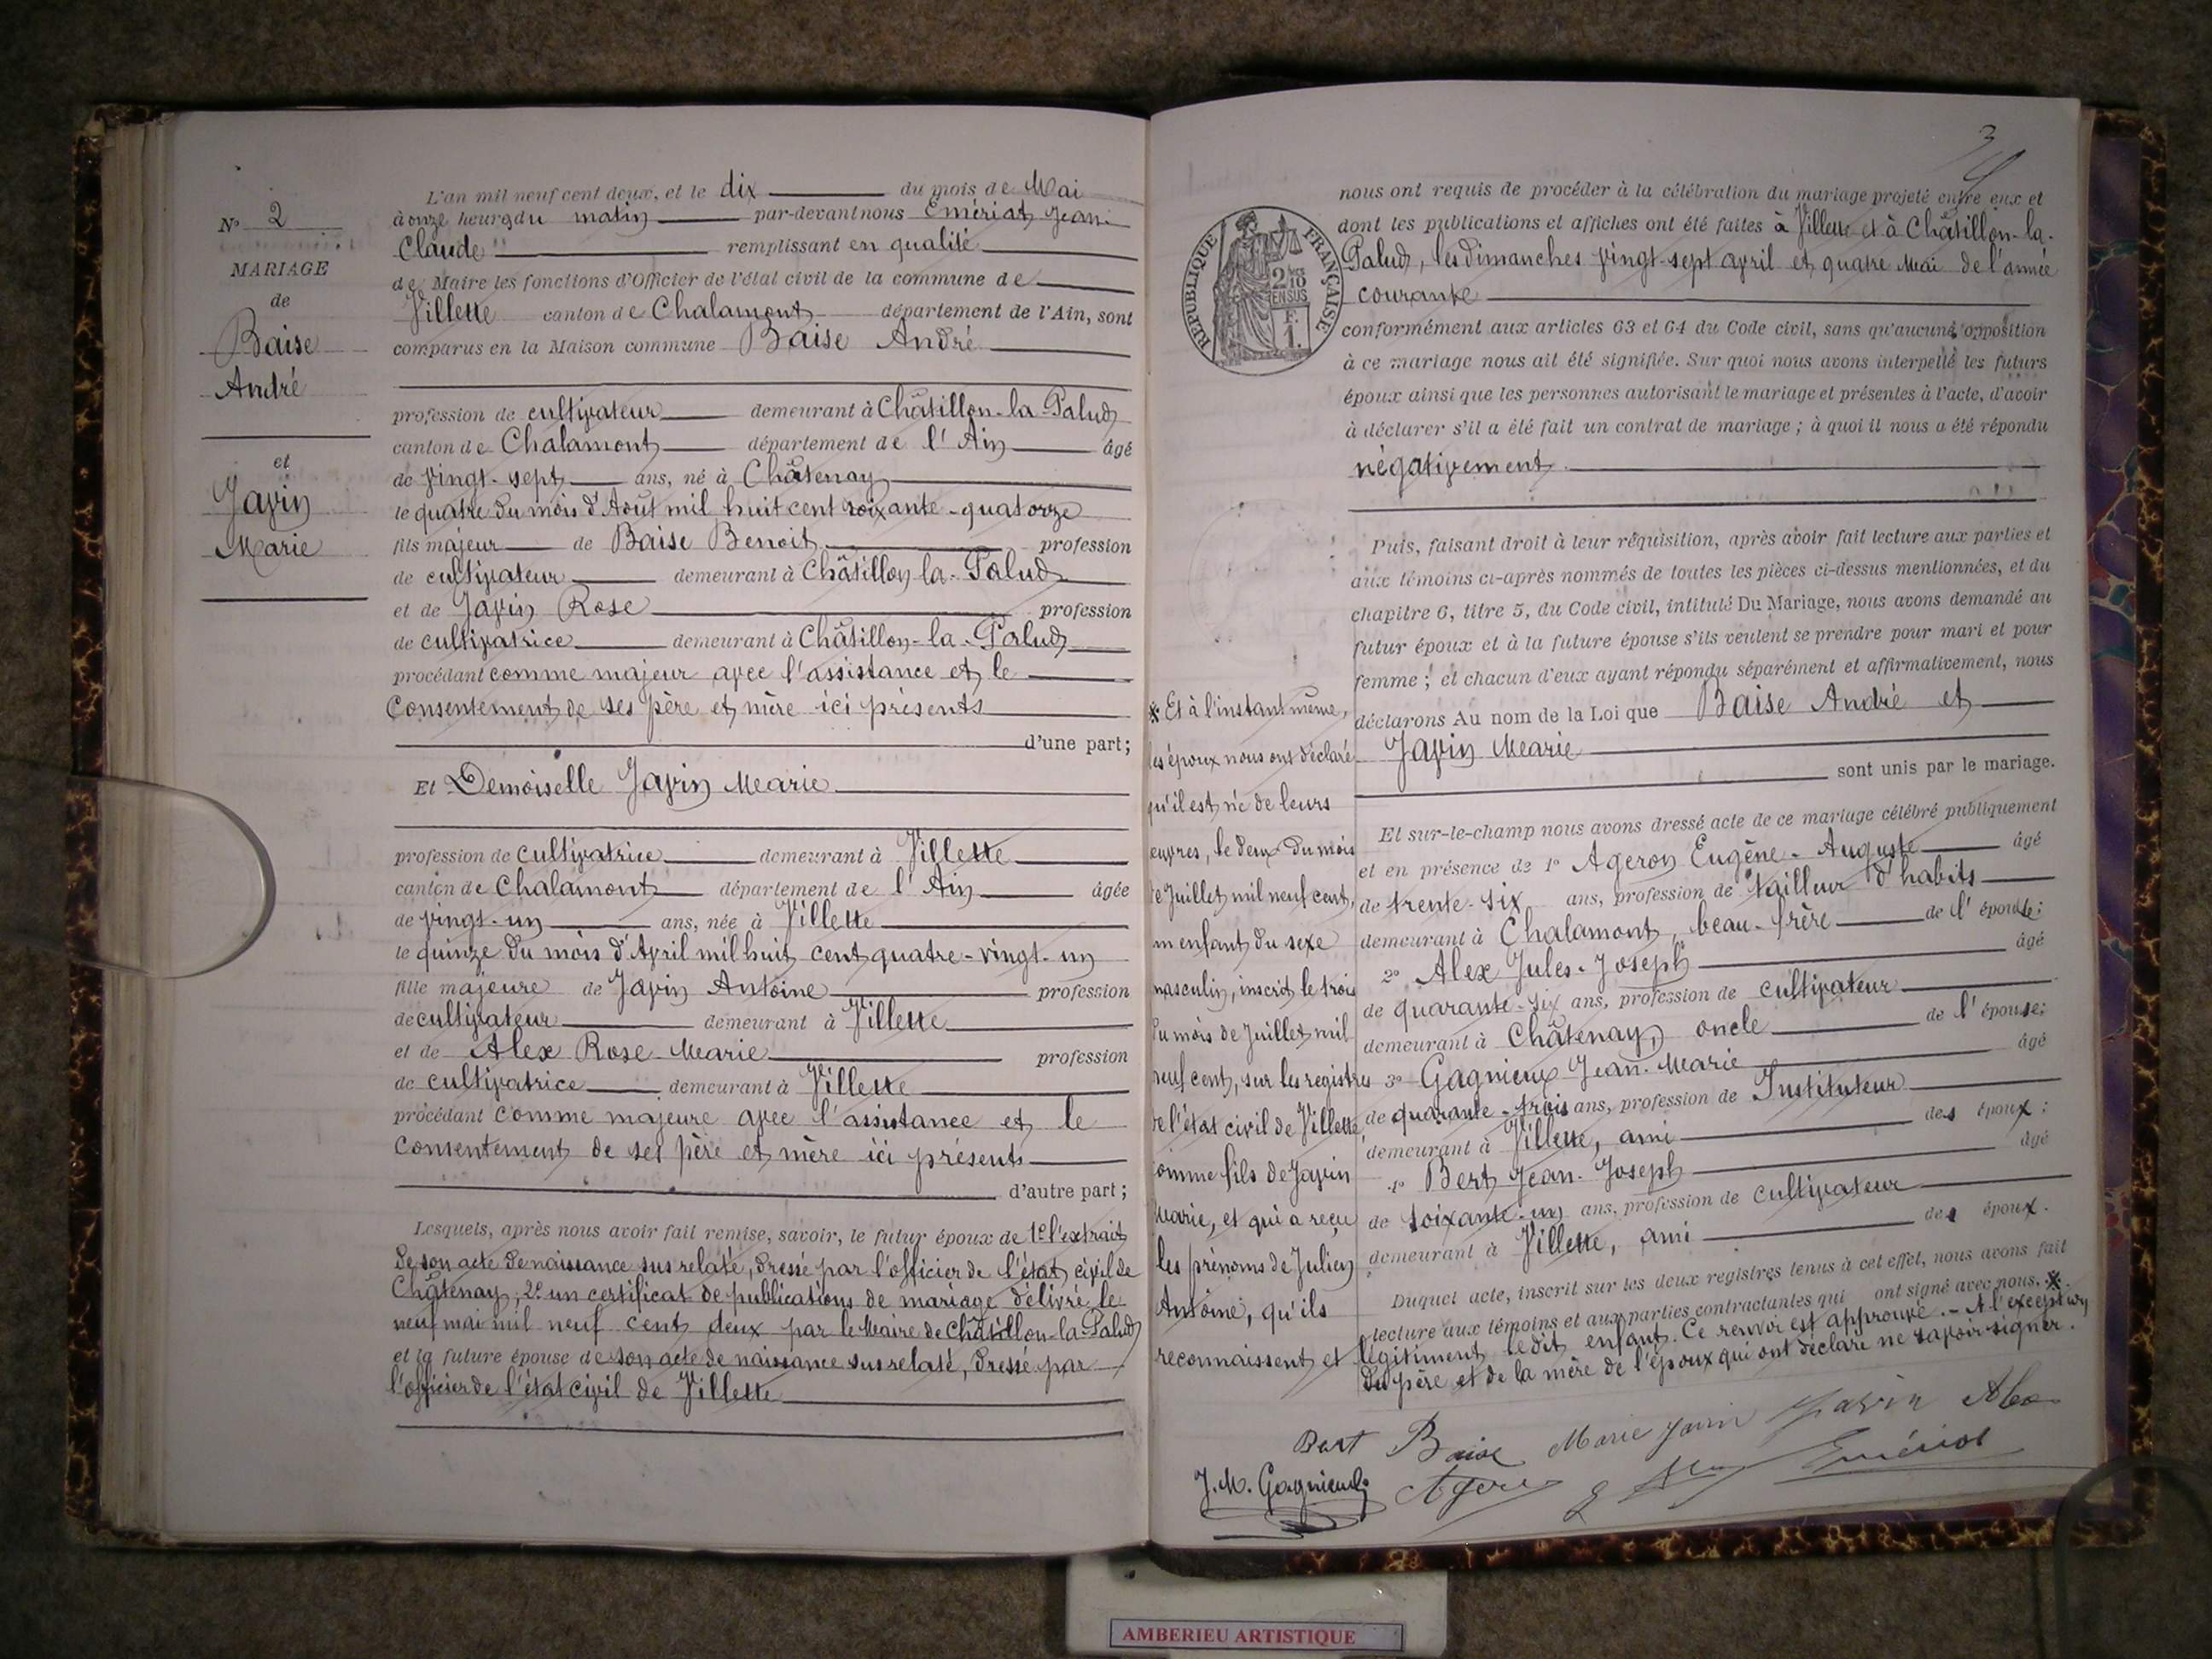 N° 2
MARIAGE
de
Baise
André
et
Javin
Marie
L'an mil neuf cent deux, et le dix du mois de Mai
à onze heures du matin par-devant nous Emériat Jean
Claude remplissant en qualité
de Maire les fonctions d'Officier de l'état civil de la commune de
Villette canton de Chalamont département de l'Ain, sont
comparus en la Maison commune Baise André
profession de cultivateur demeurant à Châtillon-la-Palud
canton de Chalamont département de l'Ain âgé
de vingt-sept ans, né à Châtenay
le quatre du mois d'Août mil huit cent soixante-quatorze
fils majeur de Baise Benoit profession
de cultivateur demeurant à Châtillon-la-Palud
et de Javin Rose profession
de cultivatrice demeurant à Châtillon-la-Palud
procédant comme majeur avec l'assistance et le
Consentement de ses père et mère ici présents
d'une part;
Et Demoiselle Javin Marie
profession de cultivatrice demeurant à Villette
canton de Chalamont département de l'Ain âgée
de vingt-un ans, née à Villette
le quinze du mois d'Avril mil huit cent quatre-vingt-un
fille majeure de Javin Antoine profession
de cultivateur demeurant à Villette
et de Alex Rose-Marie profession
de cultivatrice demeurant à Villette
procédant comme majeure avec l'assistance et le
Consentement de ses père et mère ici présents
d'autre part;
Lesquels, après nous avoir fait remise, savoir, le futur époux de 1° l'extrait
de son acte de naissance sus relaté, dressé par l'officier de l'état civil de
Châtenay, 2° un certificat de publications de mariage délivré le
neuf mai mil neuf cent deux par le Maire de Châtillon-la-Palud
et la future épouse de son acte de naissance sus relaté, dressé par
l'officier de l'état civil de Villette
3
REPUBLIQUE FRANÇAISE
2/10
EN SUS
F.
1.
nous ont requis de procéder à la célébration du mariage projeté entre eux et
dont les publications et affiches ont été faites à Villette et à Châtillon-la-
Palud, les dimanches vingt-sept avril et quatre Mai de l'année
courante
conformément aux articles 63 et 64 du Code civil, sans qu'aucune opposition
à ce mariage nous ait été signifiée. Sur quoi nous avons interpellé les futurs
époux ainsi que les personnes autorisant le mariage et présentes à l'acte, d'avoir
à déclarer s'il a été fait un contrat de mariage ; à quoi il nous a été répondu
négativement.
Puis, faisant droit à leur réquisition, après avoir fait lecture aux parties et
aux témoins ci-après nommés de toutes les pièces ci-dessus mentionnées, et du
chapitre 6, titre 5, du Code civil, intitulé Du Mariage, nous avons demandé au
futur époux et à la future épouse s'ils veulent se prendre pour mari et pour
femme ; et chacun d'eux ayant répondu séparément et affirmativement, nous
déclarons Au nom de la Loi que Baise André et
Javin Marie
sont unis par le mariage.
Et sur-le-champ nous avons dressé acte de ce mariage célébré publiquement
et en présence de 1° Ageron Eugène-Auguste âgé
de trente-six ans, profession de tailleur d'habits
demeurant à Chalamont, beau-frère de l'épouse;
2° Alex Jules-Joseph âgé
de quarante-six ans, profession de cultivateur
demeurant à Châtenay, oncle de l'épouse;
3° Gagnieux Jean-Marie âgé
de quarante-trois ans, profession de Instituteur
demeurant à Villette, ami des époux;
4° Bert Jean-Joseph âgé
de soixante-un ans, profession de cultivateur
demeurant à Villette, ami des époux.
Duquel acte, inscrit sur les deux registres tenus à cet effet, nous avons fait
lecture aux témoins et aux parties contractantes qui ont signé avec nous. *
* Et à l'instant même,
les époux nous ont déclaré
qu'il est né de leurs
œuvres, le deux du mois
de Juillet mil neuf cent,
un enfant du sexe
masculin, inscrit le trois
du mois de Juillet mil
neuf cent, sur les registres
de l'état civil de Villette
comme fils de Javin
Marie, et qui a reçu
les prénoms de Julien
Antoine, qu'ils
reconnaissent et légitiment ledit enfant. Ce renvoi est approuvé. - A l'exception
du père et de la mère de l'époux qui ont déclaré ne savoir signer.
Bert Baise Marie Javin Javin Alex
J. M. Gagnieux Ageron Alex Emériat
AMBERIEU ARTISTIQUE